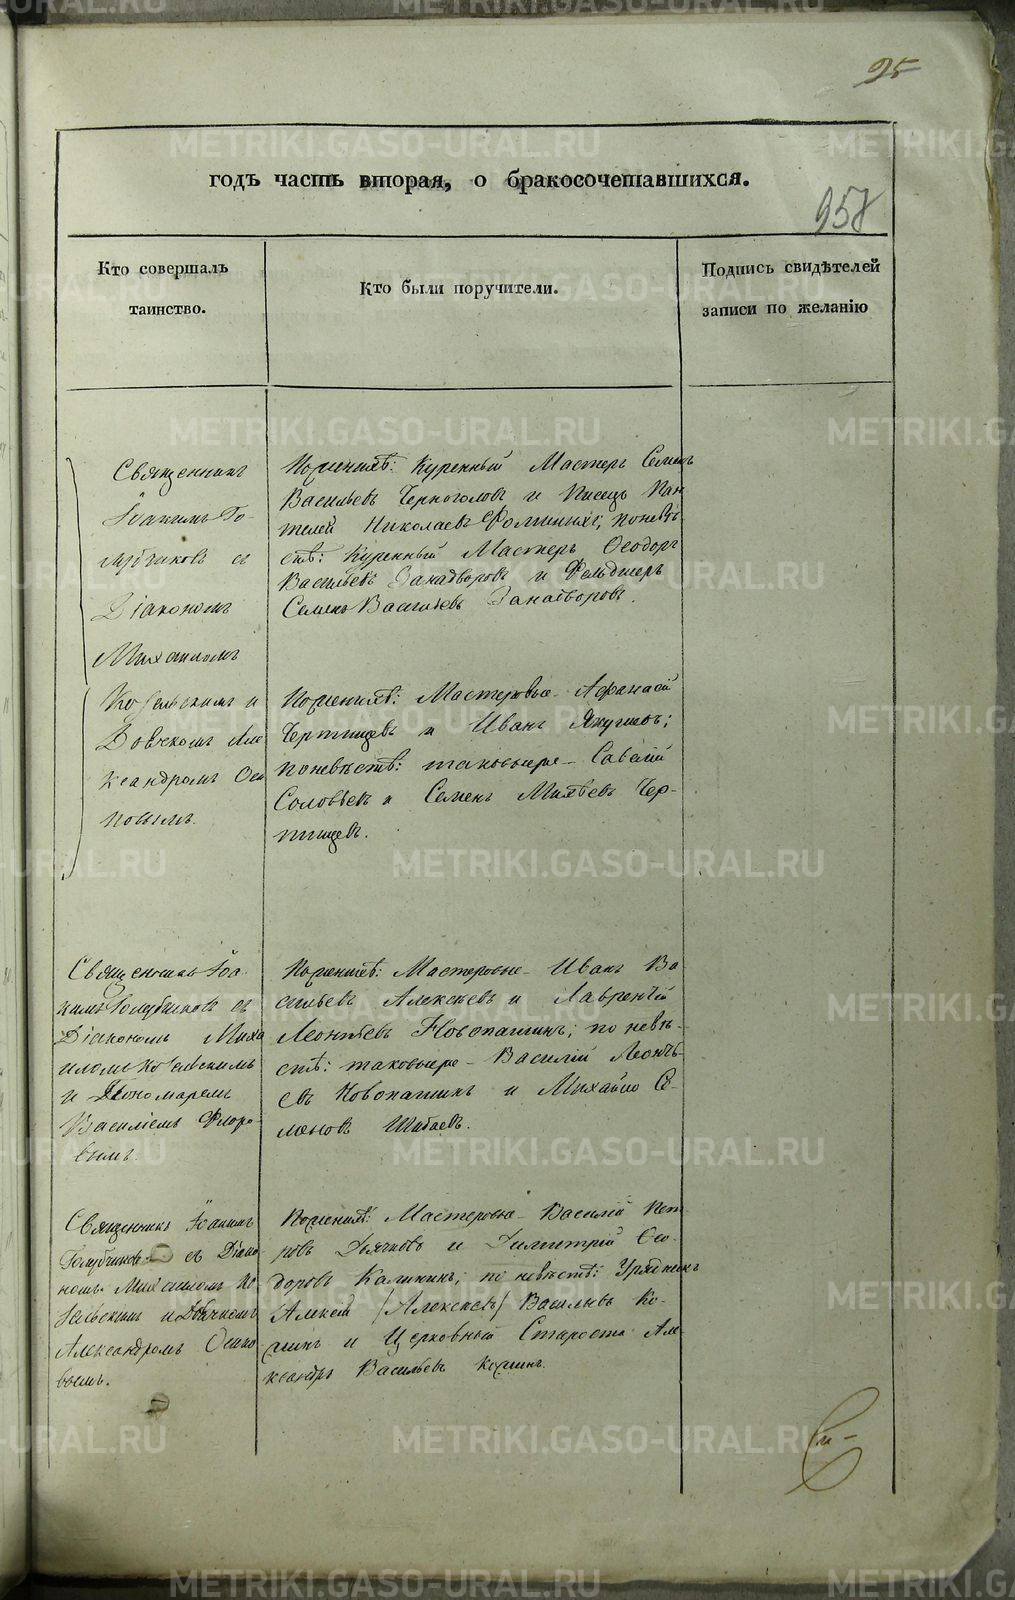 95
годъ часть вторая, о бракосочетавшихся.
958
Кто совершалъ
таинство.
Кто были поручители.
Подпись свидѣтелей
записи по желанію
Священникъ
Іоакимъ Го-
лубчиковъ съ
Діакономъ
Михаиломъ
Козельскимъ и
Александромъ Оси
повымъ.
По женихѣ: Куренный Мастеръ Семенъ
Васильевъ Черноголовъ и Писецъ Пан
телей Николаевъ; по невѣ-
стѣ: Куренный Мастеръ Ѳеодоръ
Васильевъ Занадворовъ и Фельдшеръ
Семенъ Васильевъ Занадворовъ.
По женихѣ: Мастеровые Афанасій
Чертищевъ и Иванъ Якушовъ;
по невѣстѣ: таковые же Савелій
Соловьевъ и Семенъ Чер-
тищевъ.
Священникъ Іоа
кимъ Голубчиковъ съ
Діакономъ Миха
иломъ Козельскимъ
и Пономаремъ
Василіемъ Флоро-
вымъ.
По женихѣ: Мастеровые Иванъ Ва
сильевъ Алексѣевъ и Лаврентій
Леонтьевъ Новопашинъ; по невѣ-
стѣ: таковые же Василій Леонть-
евъ Новопашинъ и Михайло Се-
меновъ Шабаевъ.
Священникъ Іоакимъ
Голубчиковъ съ Діако
номъ Михаиломъ Ко-
зельскимъ и Дьячкомъ
Александромъ Осипо
вымъ.
По женихѣ: Мастеровые Василій Пет
ровъ Дьячковъ и Димитрій Ѳео-
доровъ Калининъ; по невѣстѣ: Урядникъ
Алексѣй (Алексѣевъ) Васильевъ
и Церковный Староста Але
ксандръ Васильевъ